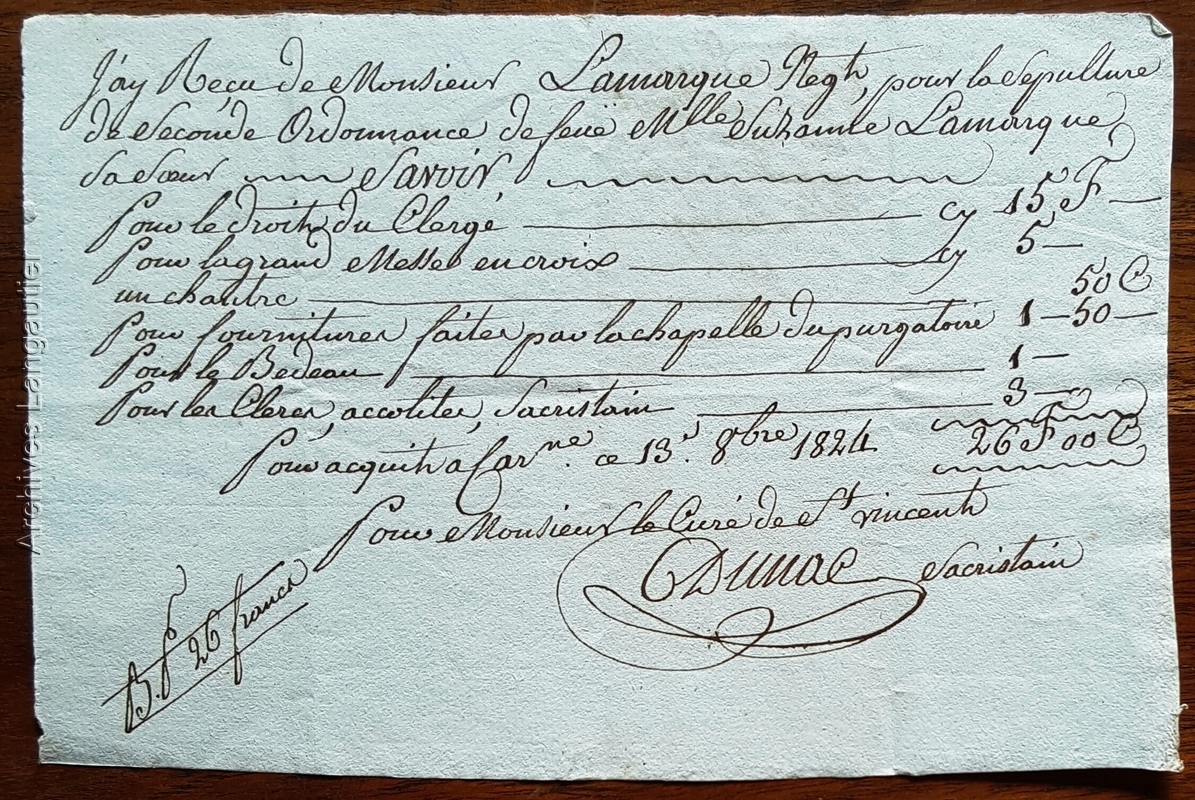 J'ay Reçu de Monsieur Lamarque Negt, pour la Sepulture
de Seconde Ordonnance de feüe Mlle Suzanne Lamarque,
Sa Sœur Savoir,
Pour le droit du Clergé cy 15 F
Pour la grand Messe en croix cy 5
un chantre 50 C
Pour fournitures faites par la chapelle du purgatoire 1 50
Pour le Bedeau 1
Pour les Clercs, accolites, Sacristain 3
Pour acquit a Carne. ce 13. 8bre 1824 26 F 00 C
Pour Monsieur le Curé de St vincent
Dunac Sacristain
B. p 26 francs
Archives Langautier